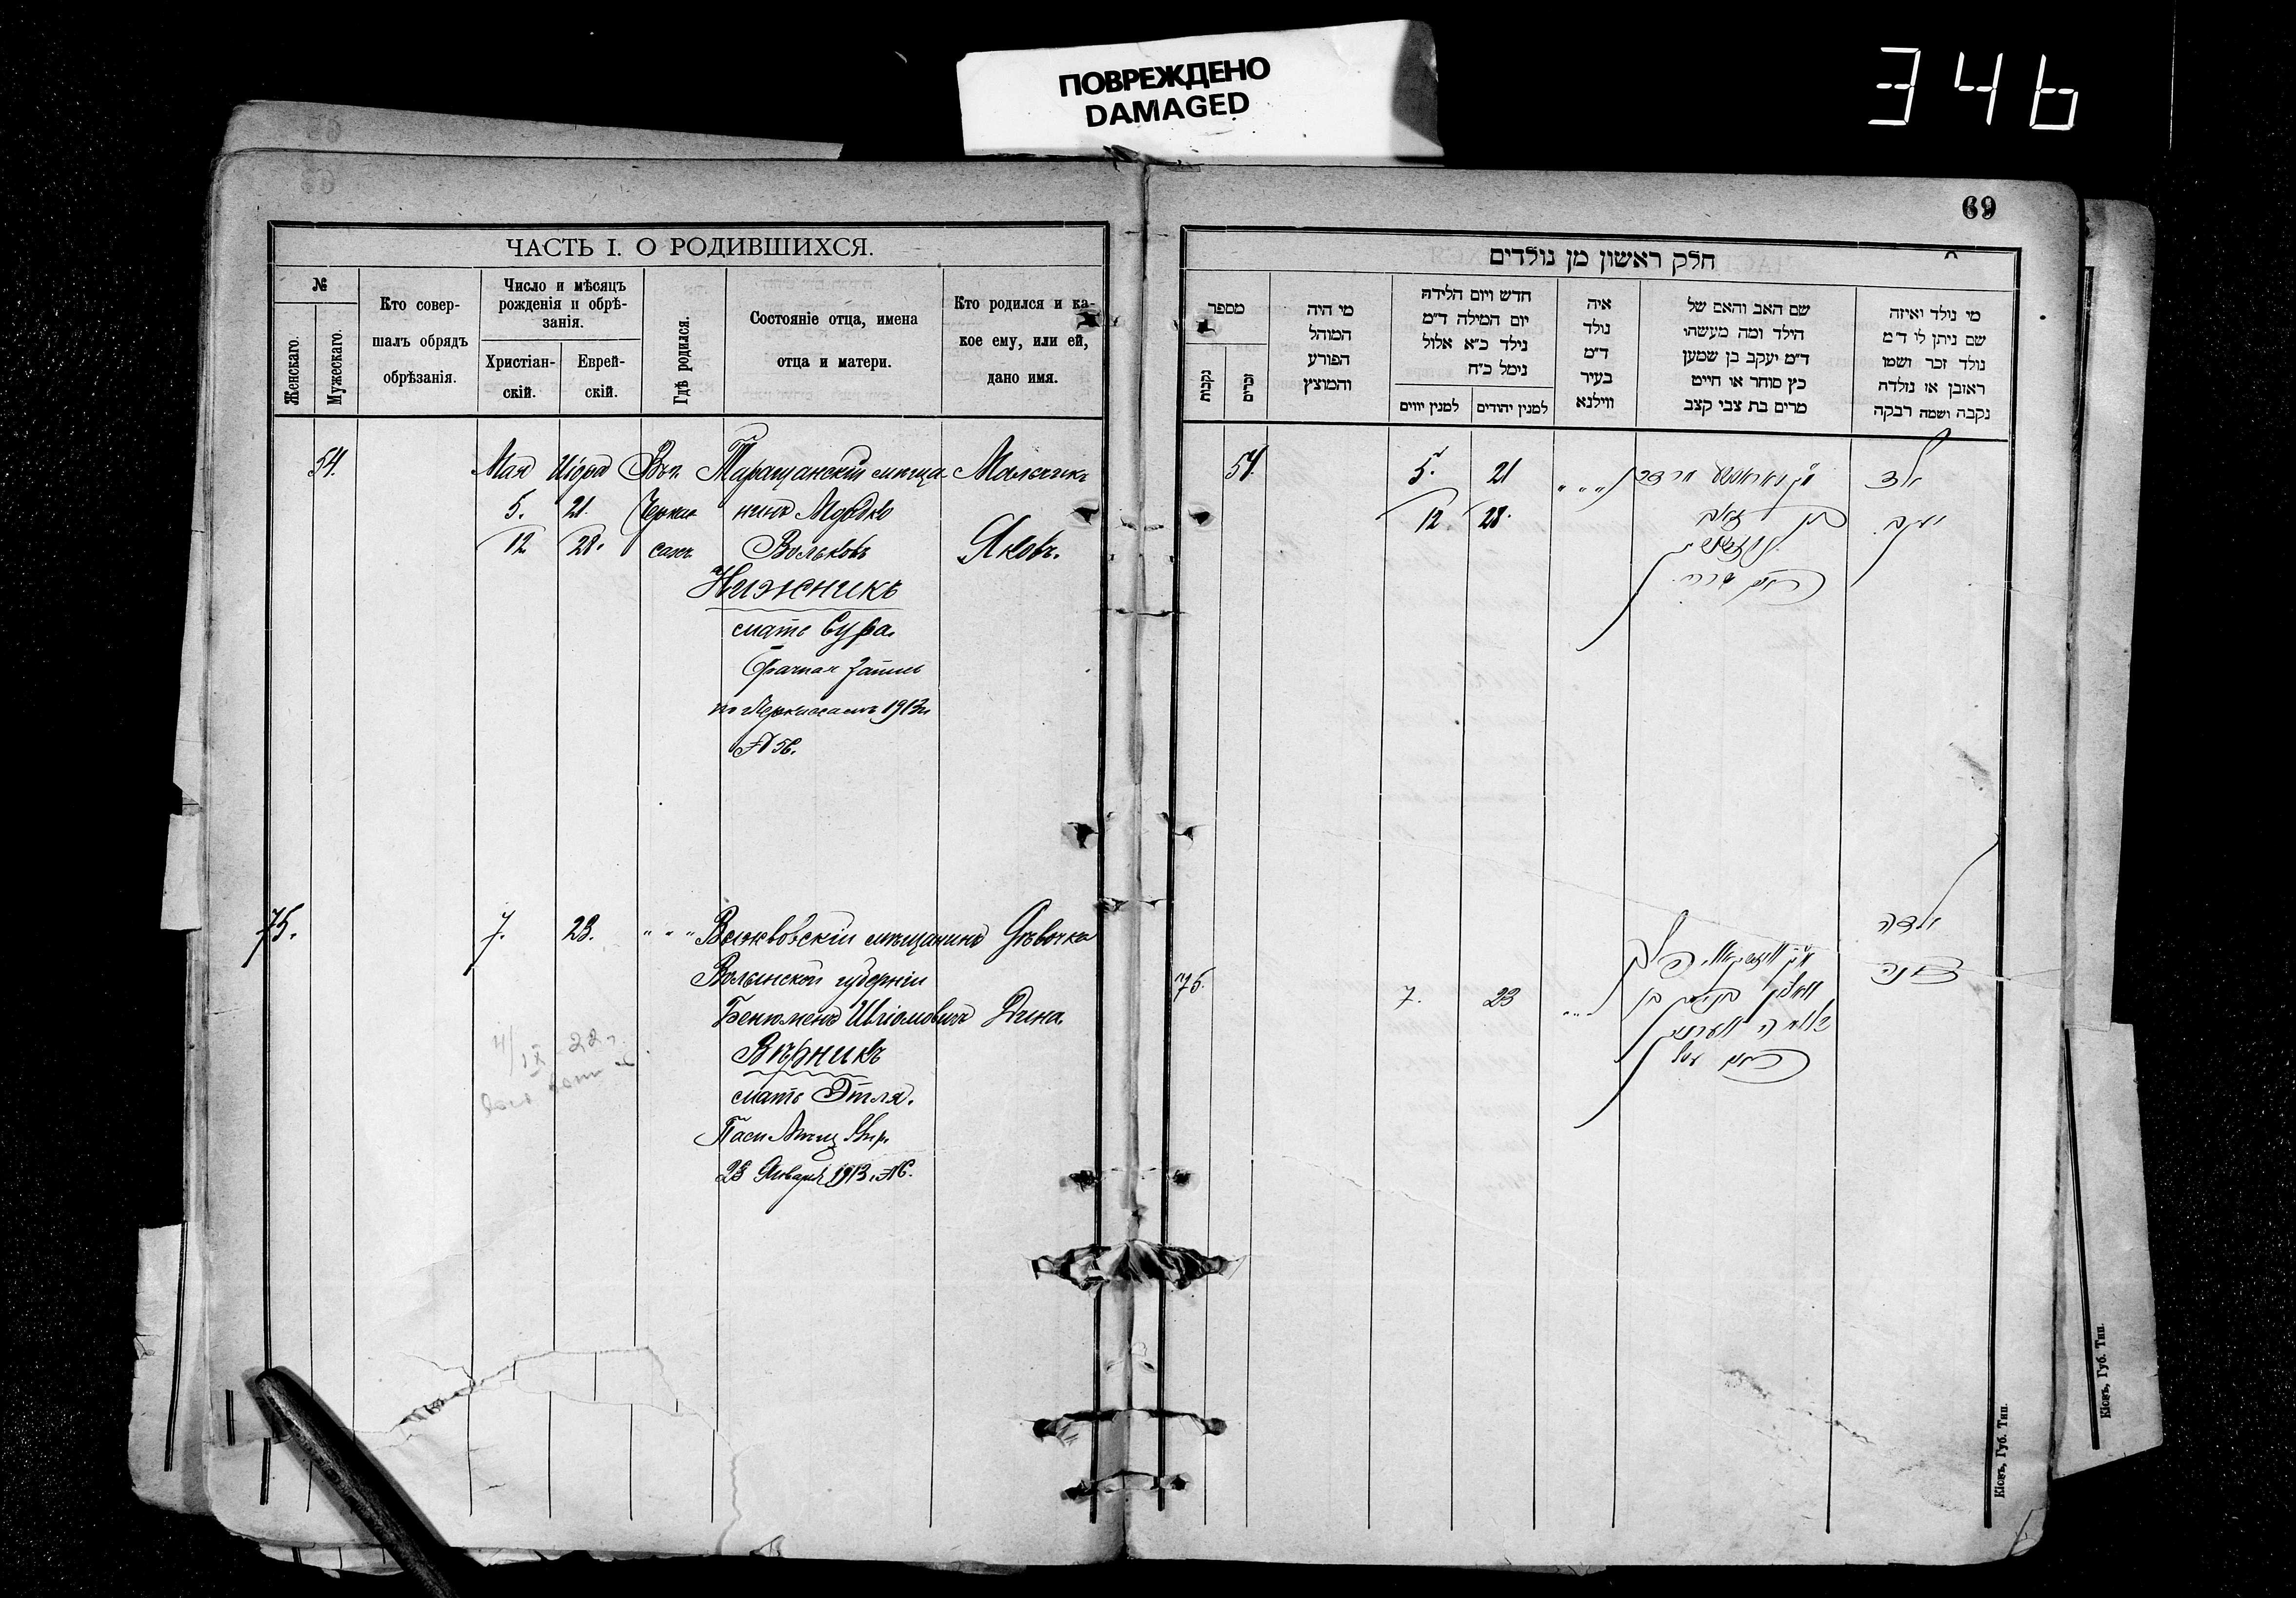 ПОВРЕЖДЕНО
DAMAGED
346
69
ЧАСТЬ I. О РОДИВШИХСЯ.
№
Женскаго.
Мужескаго.
Кто совер-
шалъ обрядъ
обрѣзанія.
Число и мѣсяцъ
рожденія и обрѣ-
занія.
Христіан-
скій.
Еврей-
скій.
Гдѣ родился.
Состояніе отца, имена
отца и матери.
Кто родился и ка-
кое ему, или ей,
дано имя.
54.
Мая
5.
12
Иіора
21.
28.
Въ г.
Черкас
сахъ
Таращанскій мѣща-
нинъ Мордко
Вольковъ
Нижникъ
мать Сура.
Брачная запись
по Черкассамъ 1913 г.
№ 56.
Мальчикъ
Яковъ.
75.
7.
23.
" " "
мѣщанинъ
Волынской губерніи
Бенюменъ Шліомовичъ
Вѣрникъ
мать Этля.
Пасп. Мѣщ. Упр.
23 Января 1913.
Дѣвочка
Дина.
חלק ראשון מן נולדים
מספר
נקבות
זכרים
מי היה
המוהל
הפורע
והמוצץ
חדש ויום הלידה
יום המילה ד״מ
נילד כ״א אלול
נימל כ״ח
למנין יוים
למנין יהודים
איה
נולד
ד״מ
בעיר
ווילנא
שם האב והאם של
הילד ומה מעשהו
ד״מ יעקב בן שמען
כץ סוחר או חייט
מרים בת צבי קצב
מי נולד ואיזה
שם ניתן לו ד״מ
נולד זכר ושמו
ראובן או נולדה
נקבה ושמה רבקה
54.
5.
12
21
28.
" " "
ילד
יעקב
75.
7.
23
" " "
ילדה
דינה
Кіевъ, Губ. Тип.
Кіевъ, Губ. Тип.